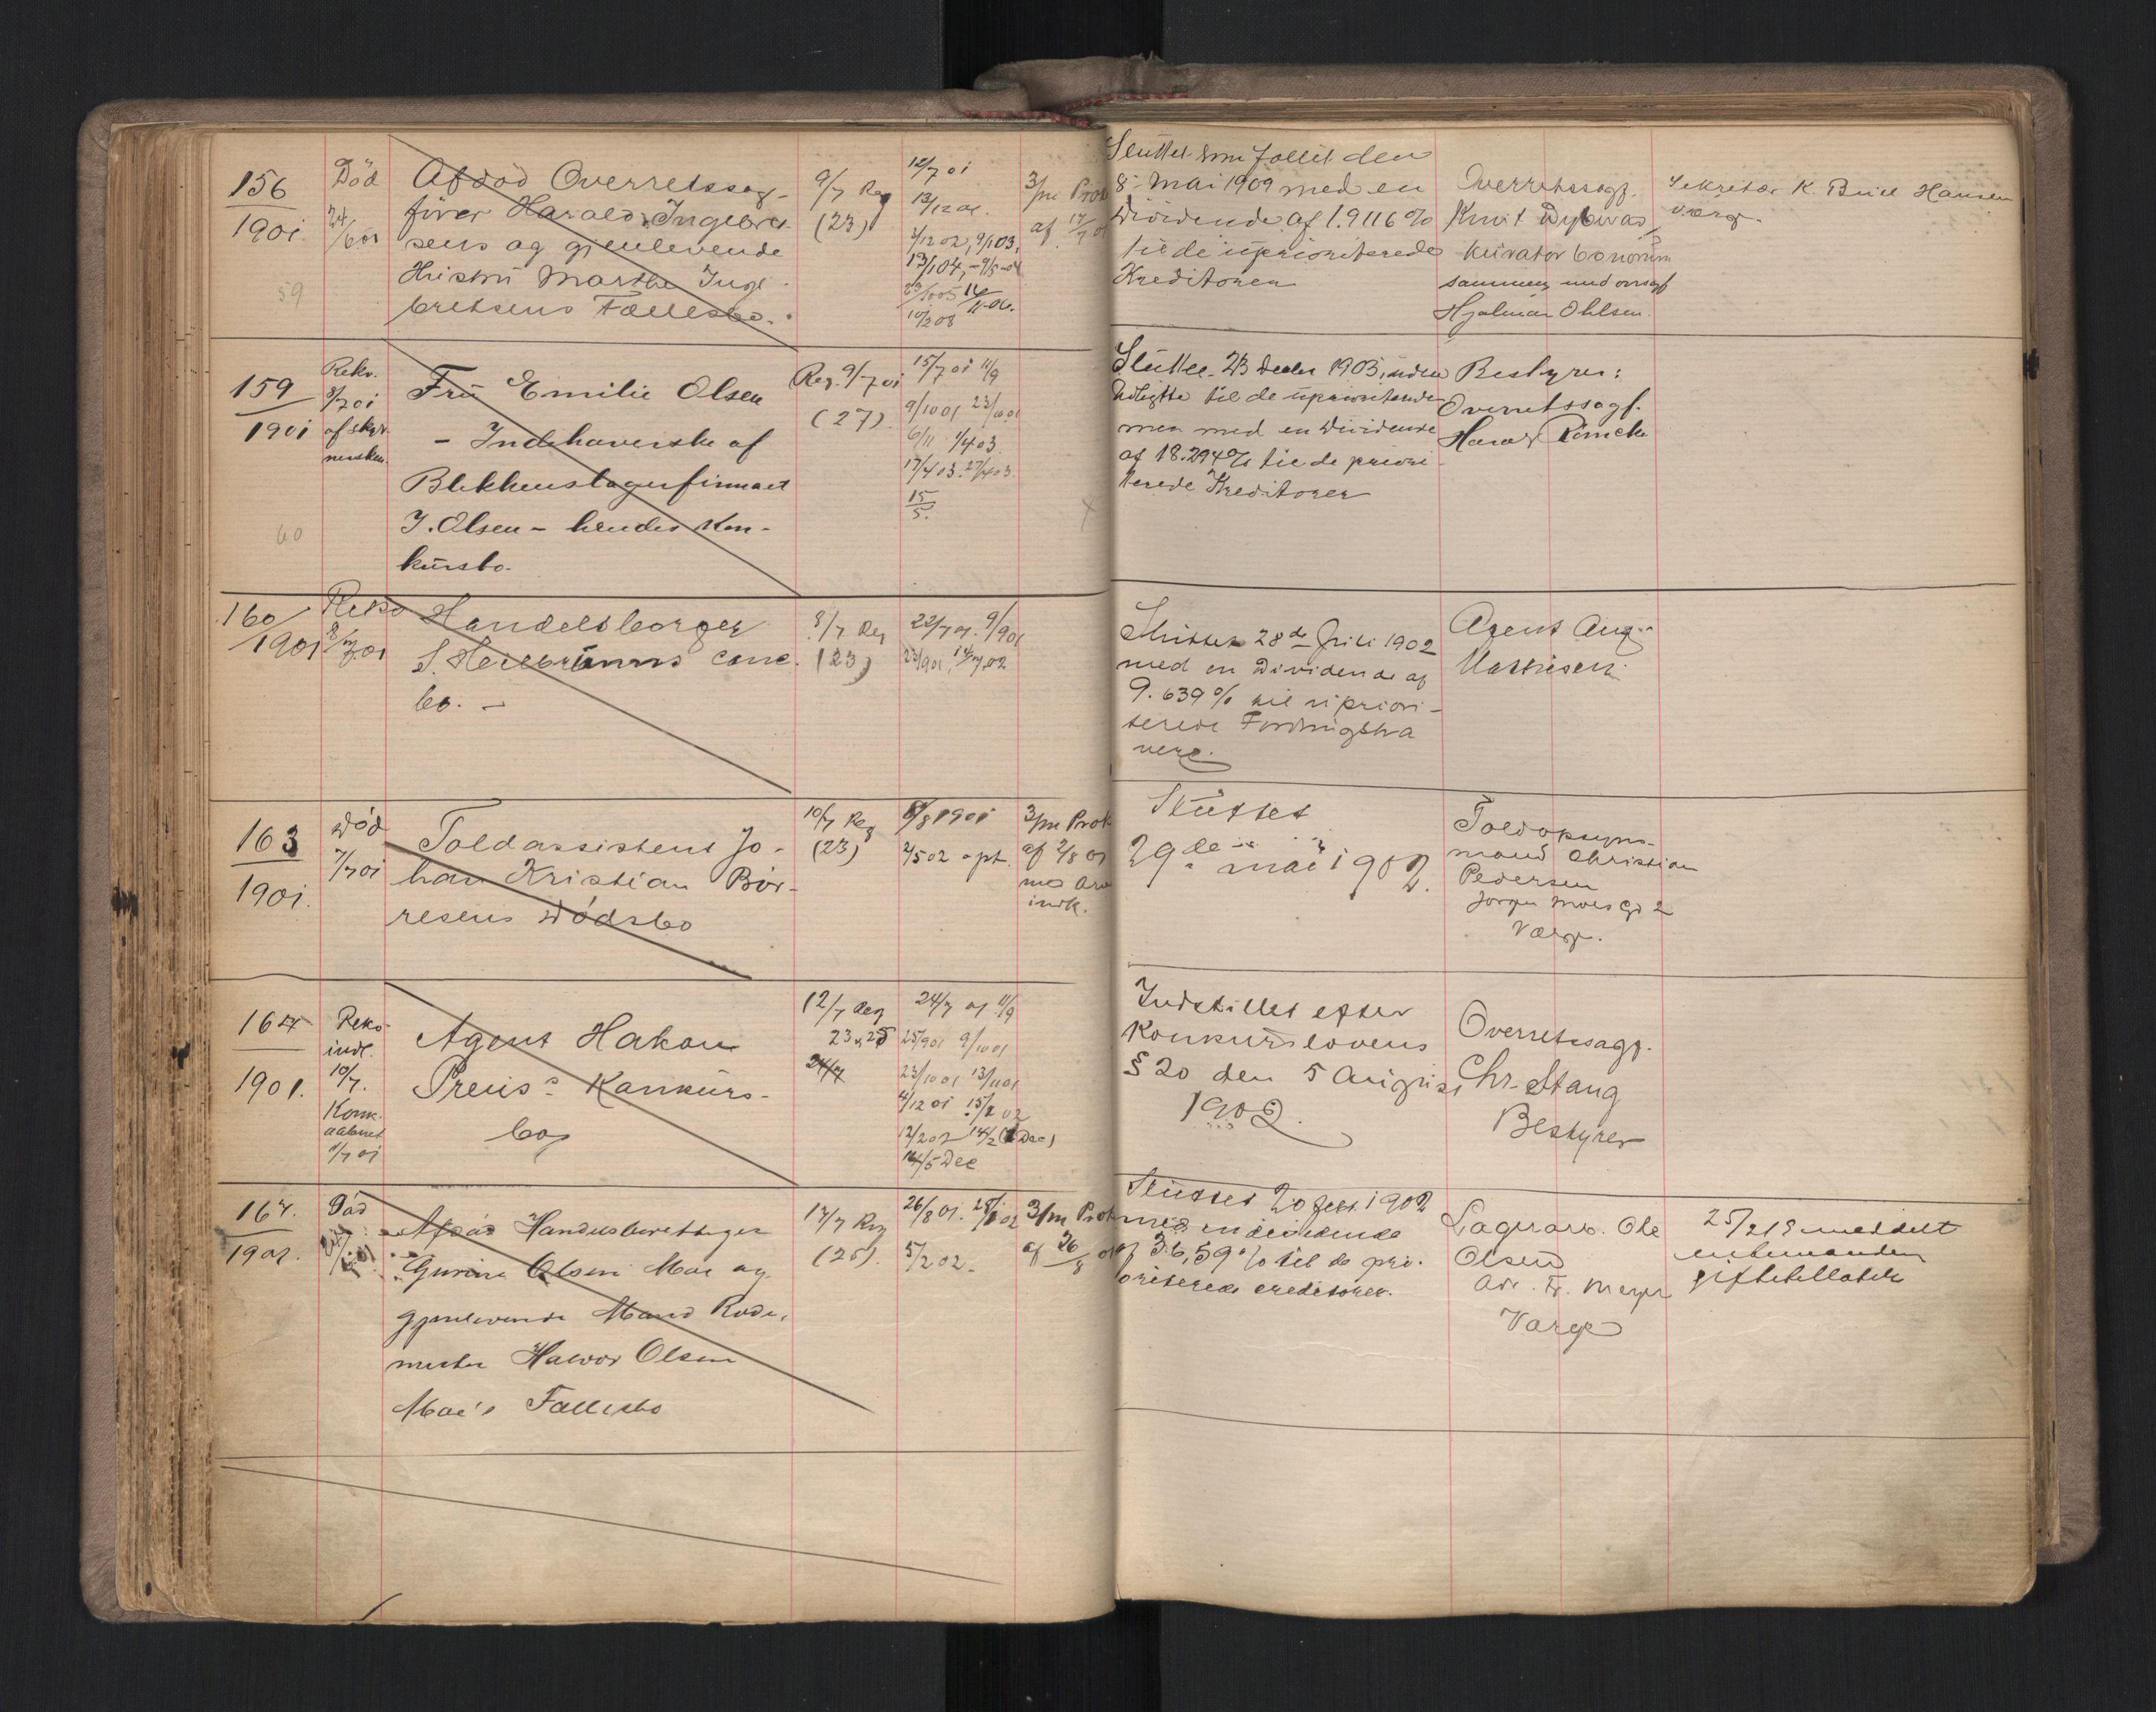 156
1901
Död
24/6 01
Afdöd Overretssag-
förer Harald Ingebret-
sens og gjenlevende
Hustru Marthe Inge-
bretsens Fællesbo.
59
9/7 Reg
(23)
12/7 01
13/12 01.
3/12 02, 9/1 03,
13/1 04, - 9/5 - 04
10/3 08
3/m Prok
af 17/7 01
Sluttet som fallit den
8 Mai 1909 med en
Dividende af 1.9116 %
til de uprioriterede
Kreditorer
Overretssagf.
Knut Dybwad
kurator bonorum
sammen med orsagf
Hjalmar Ohlsen.
Sekretær K. Hansen
værge.
159
1901
Rekv.
8/7 01
af skyl-
nersken
Fru Emilie Olsen
- Indehaverske af
Blikkenslagerfirmaet
J. Olsen - hendes Kon-
kursbo.
60
Reg. 9/7 01
(27)
15/7 01 11/9
9/10 01 23/10 01
6/11 1/4 03
17/4 03. 27/4 03
15/5.
Sluttet 23 Decbr 1903, uden
Udlægg til de uprioriterede
men med en Dividende
af 18.294 % til de priori-
terede Kreditorer
Bestyrer:
Overretssagf.
Harald
160
1901
Rekv
8/7 01
Handelsborger
S. Heilbrunns conc.
bo. -
8/7 Reg
(23)
22/7 01. 9/9 01
23/9 01, 14/7 02
Sluttet 28de Juli 1902
med en Dividende af
9.639 % til upriori-
terede Fordringsha
vere.
Agent Aug.
Mathisen
163
1901.
Död
7/7 01
Toldassistent Jo-
han Kristian Bör-
resens Dödsbo
10/7 Reg
(23)
8/8 1901
2/5 02 opt.
3/m Prok
af 2/8 01
mod Arv
indk.
Sluttet
29de Mai 1902.
Toldopsyns-
mand Christian
Pedersen
Jörgen Moes Gd 2
Værge.
164
1901.
Rekv.
indl.
10/7.
Konk.
aabnet
11/7 01
Agent Hakon
Preus's Konkurs-
bo
12/7 Reg
23 & 25
24/7
24/7 01 11/9
25/9 01 9/10 01
23/10 01 13/11 01
4/12 01 15/1 02
12/2 02 14/2 (Dec)
14/5 Dec
Indstillet efter
Konkurslovens
§ 20 den 5 August
1902.
Overretssagf.
Chr. Stang
Bestyrer
167.
1901.
Död
Afdöd Handelsberettiget
Gurine Olsen Moe og
gjenlevende Mand Rode-
mester Halvor Olsen
Moe's Fællesbo
17/7 Reg
(25).
26/8 01. 28/1 02
5/2 02.
3/m Prok
af 26/8 01
Sluttet 20 Febr. 1902
med en dividende
af 36,59 % til de pri-
oriterede creditorer.
Lagerarb. Ole
Olsen
Adr. Fr. Meyer
Værge
25/2 18 meddelt
enkemanden
giftetilladelse